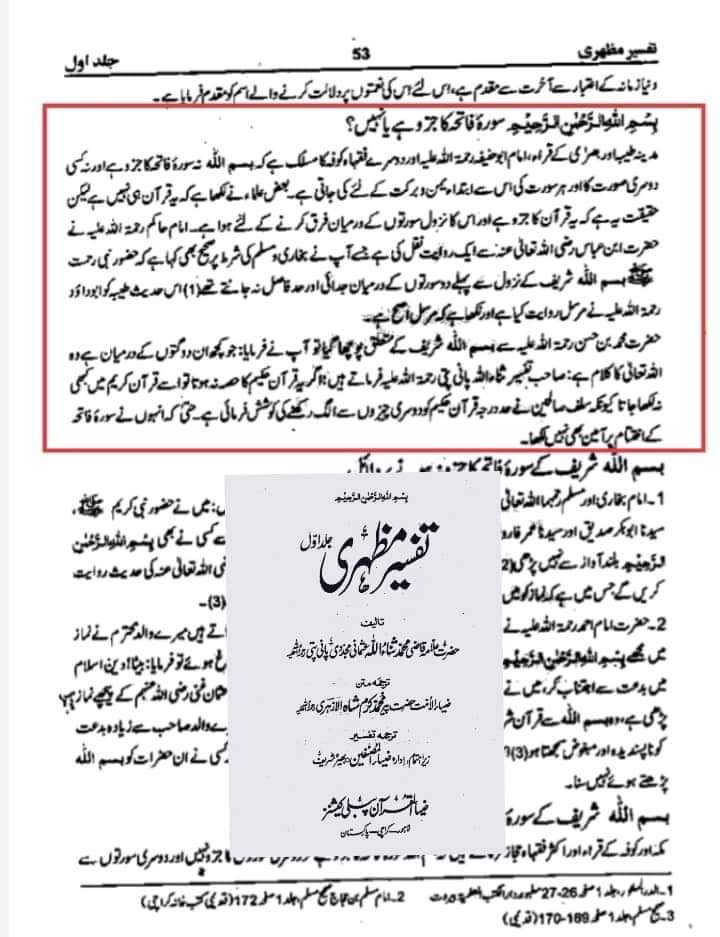 تفسیر مظہری
53
جلد اول
دنیا زمانہ کے اعتبار سے آخرت سے مقدم ہے، اس لئے اس کی نعمتوں پر دلالت کرنے والے اسم کو مقدم فرمایا ہے۔
بِسْمِ اللهِ الرَّحْمٰنِ الرَّحِيْمِ سورۂ فاتحہ کا جزو ہے یا نہیں؟
مدینہ طیبہ اور بصریٰ کے قراء، امام ابوحنیفہ رحمۃ اللہ علیہ اور دوسرے فقہاء کوفہ کا مسلک ہے کہ بسم اللہ نہ سورۂ فاتحہ کا جزو ہے اور نہ کسی
دوسری صورت کا اور ہر سورت کی اس سے ابتداء یمن و برکت کے لئے کی جاتی ہے۔ بعض علماء نے لکھا ہے کہ یہ قرآن ہی نہیں ہے لیکن
حقیقت یہ ہے کہ یہ قرآن کا جزو ہے اور اس کا نزول سورتوں کے درمیان فرق کرنے کے لئے ہوا ہے۔ امام حاکم رحمۃ اللہ علیہ نے
حضرت ابن عباس رضی اللہ تعالیٰ عنہ سے ایک روایت نقل کی ہے جسے آپ نے بخاری و مسلم کی شرط پر صحیح بھی کہا ہے کہ حضور نبی رحمت
ﷺ بسم اللہ شریف کے نزول سے پہلے دو سورتوں کے درمیان جدائی اور حد فاصل نہ جانتے تھے (1) اس حدیث طیبہ کو ابوداؤد
رحمۃ اللہ علیہ نے مرسل روایت کیا ہے اور لکھا ہے کہ مرسل اصح ہے۔
حضرت محمد بن حسن رحمۃ اللہ علیہ سے بسم اللہ شریف کے متعلق پوچھا گیا تو آپ نے فرمایا: جو کچھ ان دو گتوں کے درمیان ہے وہ
اللہ تعالیٰ کا کلام ہے: صاحب تفسیر ثناء اللہ پانی پتی رحمۃ اللہ علیہ فرماتے ہیں: اگر یہ قرآن حکیم کا حصہ نہ ہوتا تو اسے قرآن کریم میں کبھی
نہ لکھا جاتا کیونکہ سلف صالحین نے حد درجہ قرآن حکیم کو دوسری چیزوں سے الگ رکھنے کی کوشش فرمائی ہے۔ حتیٰ کہ انہوں نے سورۂ فاتحہ
کے اختتام پر آمین بھی نہیں لکھا۔
بسم اللہ شریف کے سورۂ فاتحہ کا جزو نہ ہونے پر دلائل
1۔ امام بخاری اور مسلم رحمہما اللہ تعالیٰ
: میں نے حضور نبی کریم ﷺ،
سیدنا ابوبکر صدیق اور سیدنا عمر فارو
سے کسی نے بھی بِسْمِ اللهِ الرَّحْمٰنِ
الرَّحِيْمِ بلند آواز سے نہیں پڑھی (2
اللہ تعالیٰ عنہ کی حدیث روایت
کریں گے جس میں ہے کہ نماز کو میں
(3)۔
2۔ حضرت امام احمد رحمۃ اللہ علیہ نے
تے ہیں میرے والد محترم نے نماز
میں مجھے بِسْمِ اللهِ الرَّحْمٰنِ الرَّحِيْمِ
غ ہوئے تو فرمایا: بیٹا! دین اسلام
میں بدعت سے اجتناب کر، میں نے
عثمان غنی رضی اللہ عنہم کے پیچھے نماز
پڑھی ہے، وہ بسم اللہ سے قرآن شر
ے والد صاحب سے زیادہ بدعت
کو ناپسندیدہ اور مبغوض سمجھتا ہو (3)
کسی نے ان حضرات کو بسم اللہ
پڑھتے ہوئے نہیں سنا۔
بسم اللہ شریف کے سورۂ
مکہ اور کوفہ کے قراء اور اکثر فقہاء حجاز
کا جزو نہیں اور دوسری سورتوں سے
بِسْمِ اللهِ الرَّحْمٰنِ الرَّحِيْمِ
تفسیر مظہری
جلد اوّل
تالیف
حضرت علامہ قاضی محمد ثناء اللہ عثمانی مجددی پانی پتی
ترجمہ متن
ضیاء الامت حضرت پیر محمد کرم شاہ الازہری
ترجمہ تفسیر
زیر اہتمام: ادارہ ضیاء المصنفین، بھیرہ شریف
ضیاء القرآن پبلی کیشنز
لاہور۔ کراچی۔ پاکستان
2۔ امام مسلم بن حجاج صحیح مسلم، جلد 1 صفحہ 172 (قدیمی کتب خانہ کراچی)
3۔ صحیح مسلم، جلد 1 صفحہ 169-170 (قدیمی)